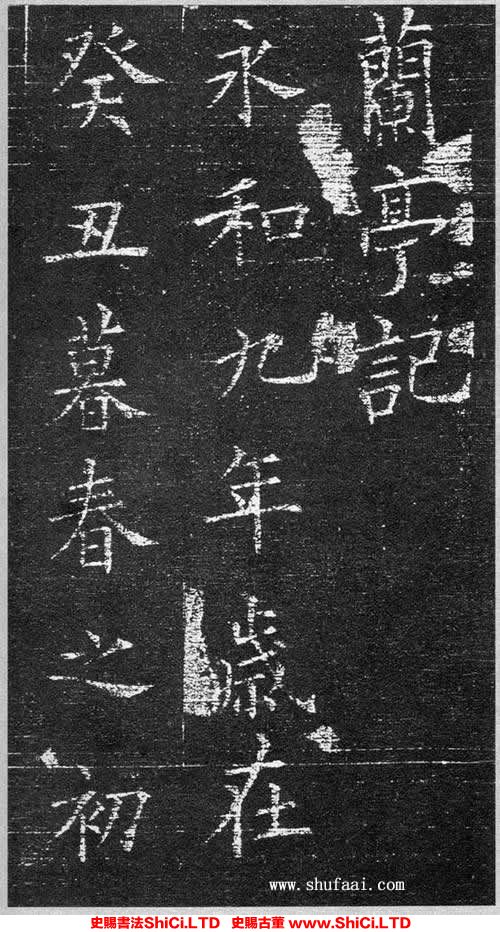 蘭亭記
永和九年歲在
癸丑暮春之初
www.shufaai.com
史賜書法ShiCi.LTD 史賜古董 www.ShiCi.LTD